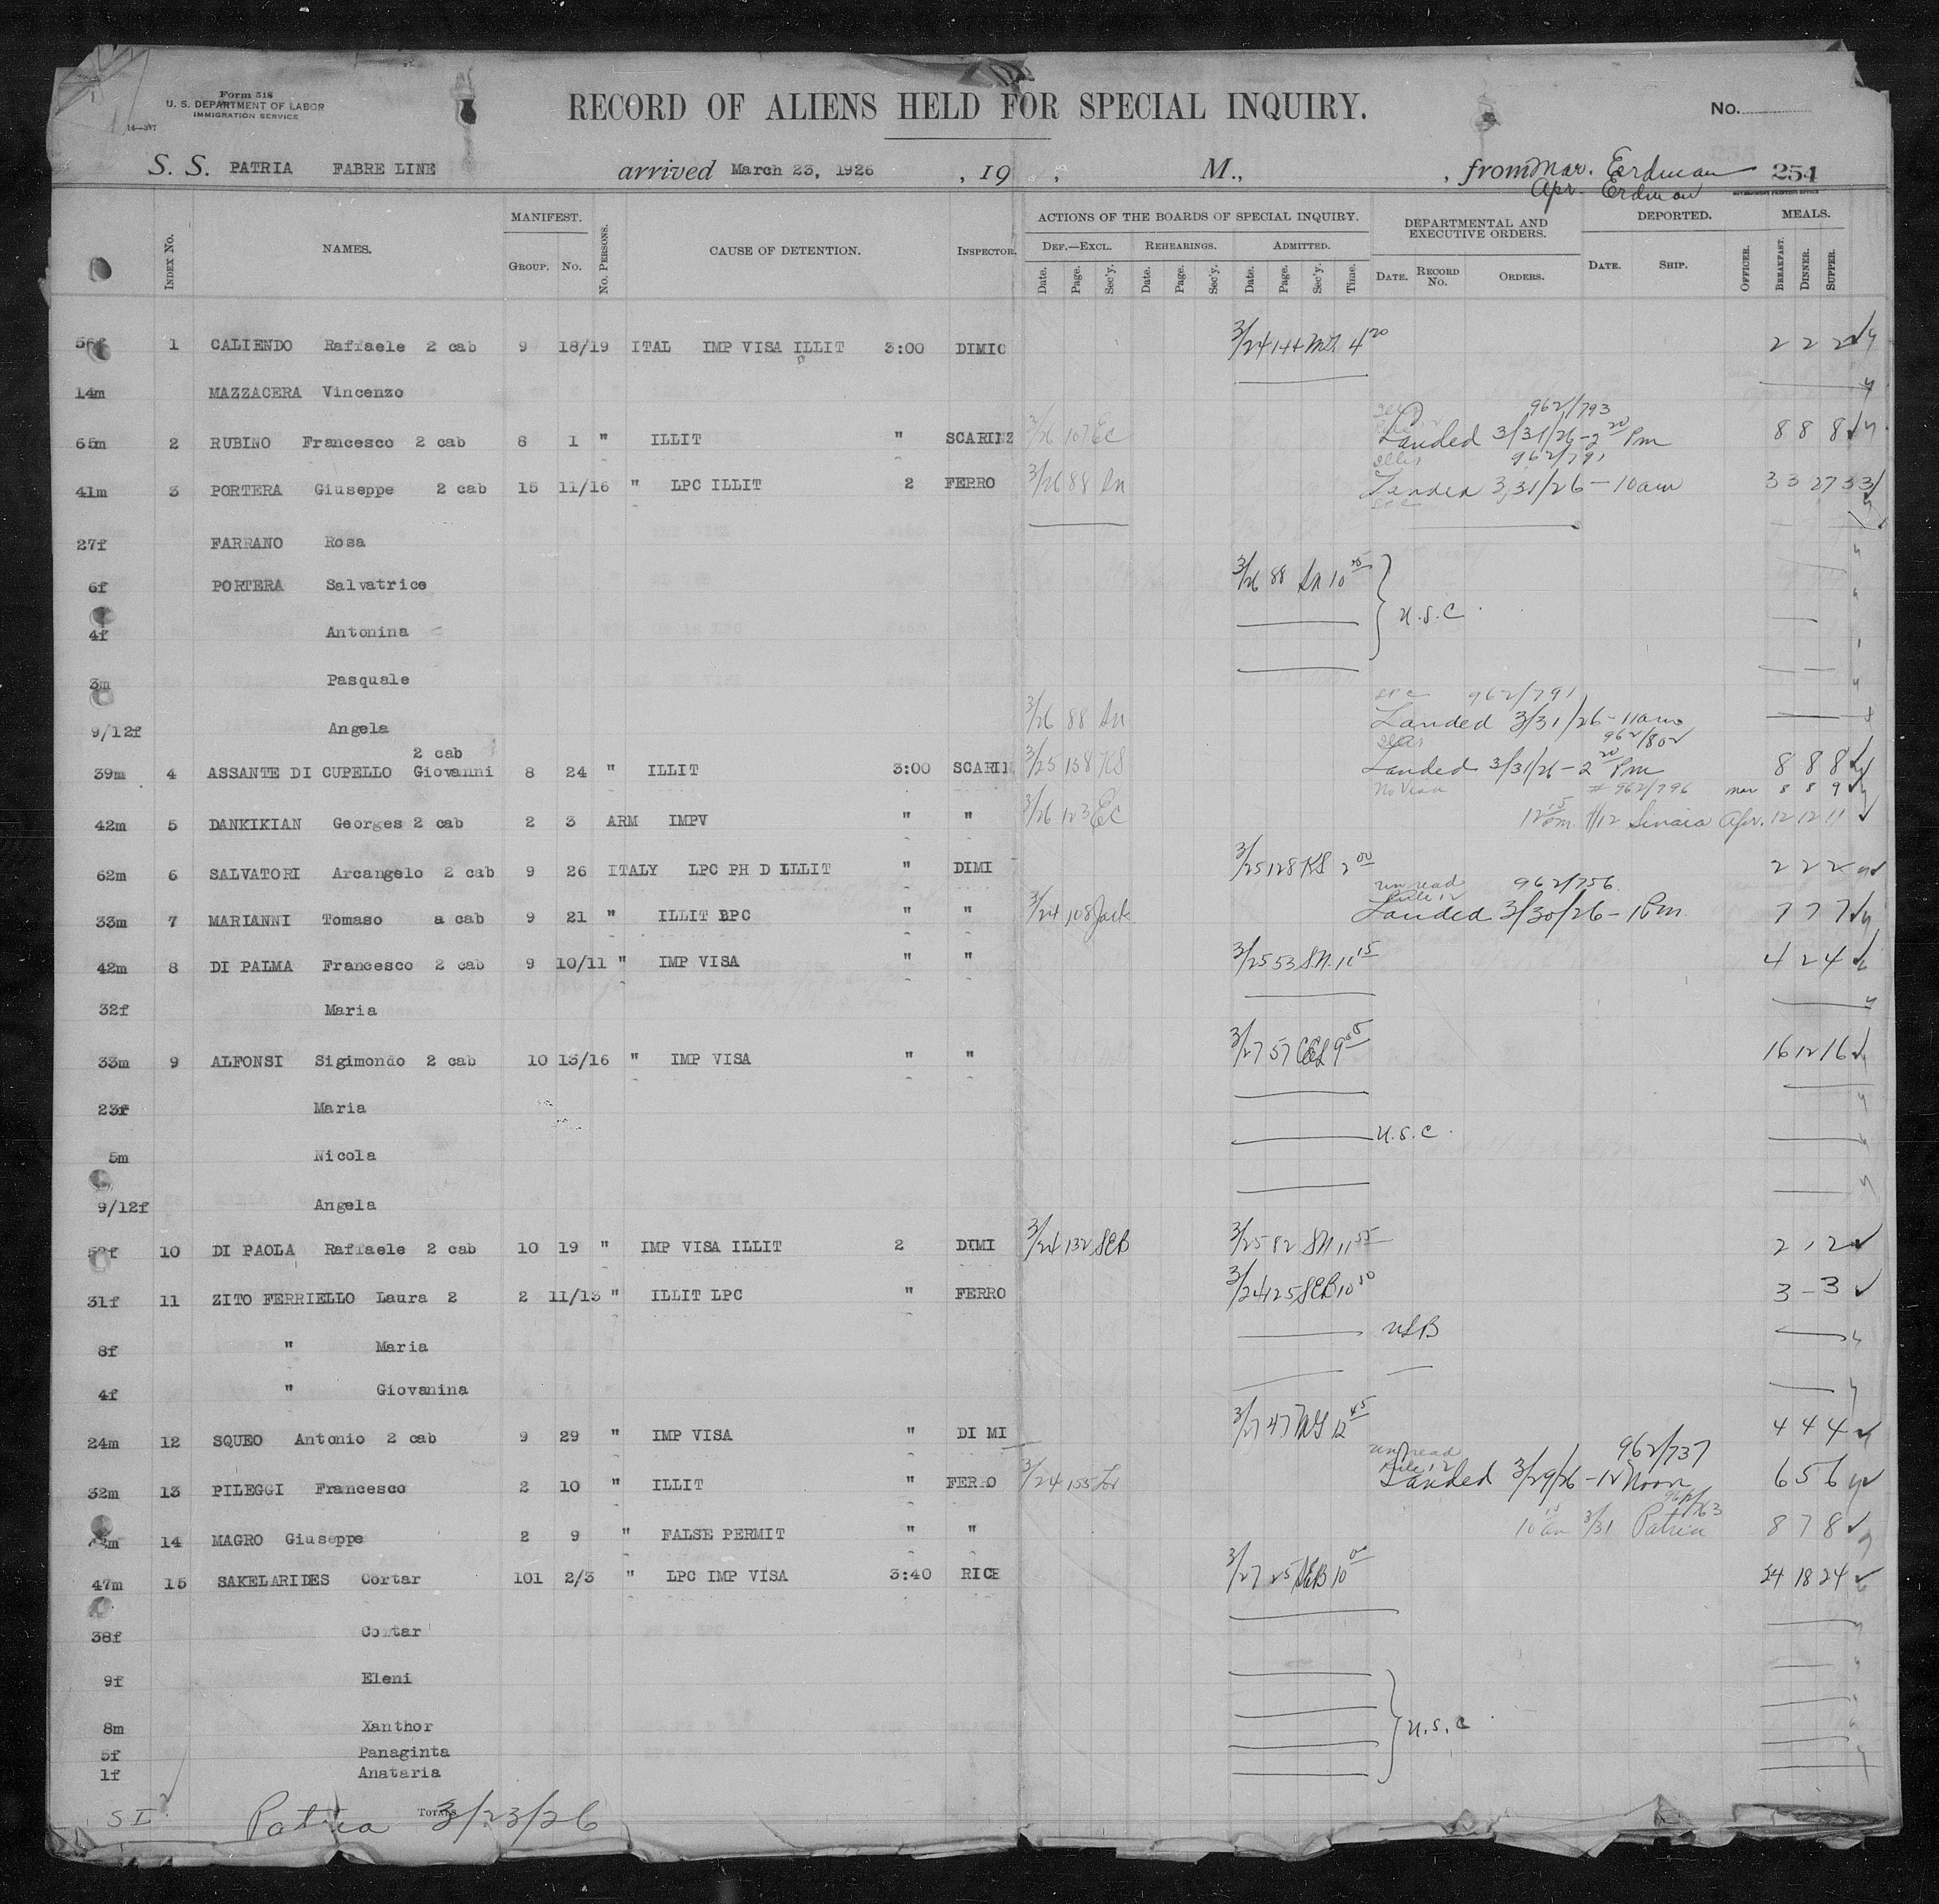 Form 518
U. S. DEPARTMENT OF LABOR
IMMIGRATION SERVICE
14—397
RECORD OF ALIENS HELD FOR SPECIAL INQUIRY.
No.
S. S. PATRIA FABRE LINE arrived March 23, 1926 , 19 , M., , from Mar. Erdman 254
Apr. Erdman
GOVERNMENT PRINTING OFFICE
INDEX NO. NAMES. MANIFEST. GROUP. NO. NO. PERSONS. CAUSE OF DETENTION. INSPECTOR. ACTIONS OF THE BOARDS OF SPECIAL INQUIRY. DEPARTMENTAL AND EXECUTIVE ORDERS. DEPORTED. MEALS.
DEF.—EXCL. REHEARINGS. ADMITTED.
Date. Page. Sec'y. Date. Page. Sec'y. Date. Page. Sec'y. Time. DATE. RECORD No. ORDERS. DATE. SHIP. OFFICER. BREAKFAST. DINNER. SUPPER.
56f 1 CALIENDO Raffaele 2 cab 9 18/19 ITAL IMP VISA ILLIT 3:00 DIMIC 3/24 144 4 20 2 2 2
14m MAZZACERA Vincenzo
962/793
65m 2 RUBINO Francesco 2 cab 8 1 " ILLIT " SCARINZ 3/26 107 EC Landed 3/31/26 - 2 20 Pm 8 8 8
962/791
41m 3 PORTERA Giuseppe 2 cab 15 11/16 " LPC ILLIT 2 FERRO 3/26 88 Sn Landed 3/31/26 - 10am 33 27 33
27f FARRANO Rosa
6f PORTERA Salvatrice 3/26 88 Sn 10
4f Antonina U.S.C.
3m Pasquale
LPC 962/791
9/12f Angela 3/26 88 Sn Landed 3/31/26 - 11am
2 cab 962/802
39m 4 ASSANTE DI CUPELLO Giovanni 8 24 " ILLIT 3:00 SCARIN 3/25 158 KS Landed 3/31/26 - 2 20 Pm 8 8 8
No Visa # 962/796 Mar 8 8 9
42m 5 DANKIKIAN Georges 2 cab 2 3 ARM IMPV " " 3/26 123 EC 12 15 pm 4/12 Sinaia Apr. 12 12 11
62m 6 SALVATORI Arcangelo 2 cab 9 26 ITALY LPC PH D LLLIT " DIMI 3/25 128 KS 2 00 2 2 2
un read 962/756
Rule 12
33m 7 MARIANNI Tomaso a cab 9 21 " ILLIT LPC " " 3/24 108 Jack Landed 3/30/26 - 1 Pm 7 7 7
42m 8 DI PALMA Francesco 2 cab 9 10/11 " IMP VISA " " 3/25 53 S.N. 11 15 4 2 4
32f Maria
33m 9 ALFONSI Sigimondo 2 cab 10 13/16 " IMP VISA " " 3/27 57 9 16 12 16
23f Maria
5m Nicola U.S.C.
9/12f Angela
10 DI PAOLA Raffaele 2 cab 10 19 " IMP VISA ILLIT 2 DIMI 3/24 132 SEB 3/25 82 SN 11 55 2 1 2
31f 11 ZITO FERRIELLO Laura 2 2 11/13 " ILLIT LPC " FERRO 3/24 125 SEB 10 3 - 3
8f " Maria USB
4f " Giovanina
24m 12 SQUEO Antonio 2 cab 9 29 " IMP VISA " DI MI 3/27 47 12 45 4 4 4
un read 962/737
Rule 12
32m 13 PILEGGI Francesco 2 10 " ILLIT " FERRO 3/24 155 Landed 3/29/26 - 12 Noon 6 5 6
14 MAGRO Giuseppe 2 9 " FALSE PERMIT " " 10 15 am 3/31 Patria 8 7 8
47m 15 SAKELARIDES Cortar 101 2/3 " LPC IMP VISA 3:40 RICE 3/27 25 SEB 10 00 24 18 24
38f Cortar
9f Eleni
8m Xanthor U.S.C.
5f Panaginta
1f Anataria
SI Patria TOTALS 3/23/26